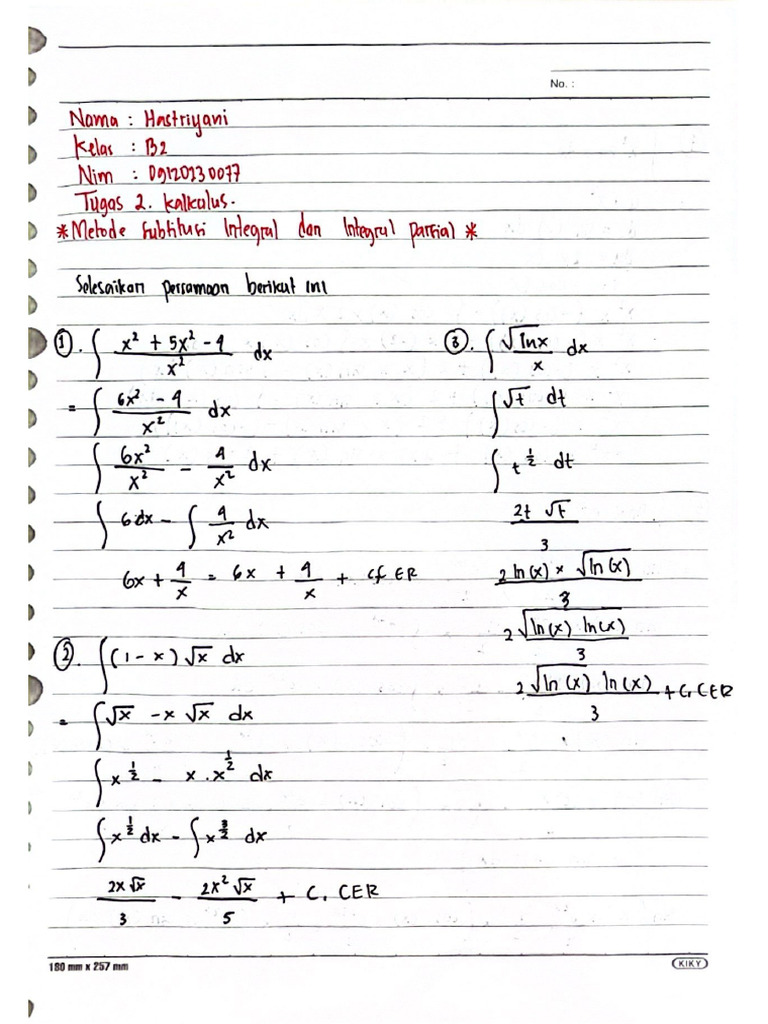 No. :
Nama : Hastriyani
Kelas : B2
Nim : 09120230077
Tugas 2. Kalkulus.
*Metode Subtitusi Integral dan Integral parsial *
Selesaikan persamaan berikut ini
①. ∫ (x² + 5x² - 4)/x² dx
= ∫ (6x² - 4)/x² dx
∫ 6x²/x² - 4/x² dx
∫ 6 dx - ∫ 4/x² dx
6x + 4/x = 6x + 4/x + C, C∈R
②. ∫ (1 - x) √x dx
= ∫ √x - x √x dx
∫ x^½ - x . x^½ dx
∫ x^½ dx - ∫ x^(3/2) dx
2x √x/3 - 2x² √x/5 + C, C∈R
③. ∫ √ln x/x dx
∫ √t dt
∫ t^½ dt
2t √t/3
2 ln (x) × √ln (x)/3
2 √ln (x) ln (x)/3
2 √ln (x) ln (x)/3 + C, C∈R
180 mm x 257 mm
KIKY